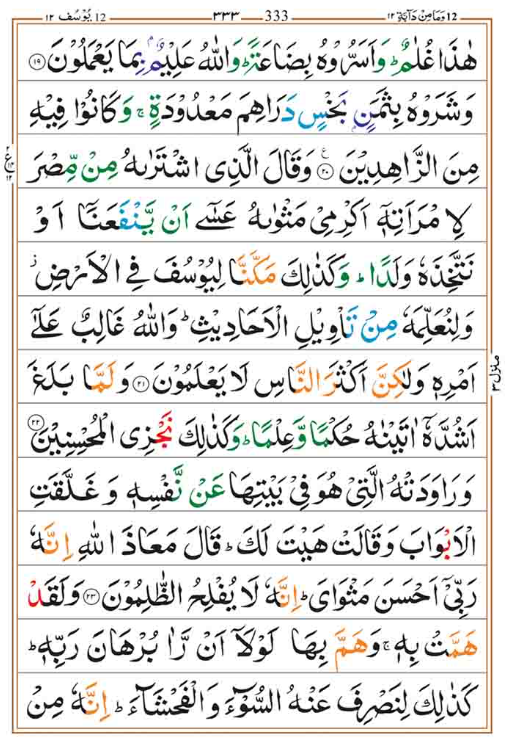 12 وَمَا مِنْ دَآبَّةٍ ١٢ 333 ٣٣٣ 12 يُوْسُف ١٢
هٰذَا غُلٰمٌ ؕ وَاَسَرُّوْهُ بِضَاعَةً ؕ وَاللّٰهُ عَلِيْمٌۢ بِمَا يَعْمَلُوْنَ ﴿۱۹﴾
وَشَرَوْهُ بِثَمَنٍۭ بَخْسٍ دَرَاهِمَ مَعْدُوْدَةٍ ۚ وَكَانُوْا فِيْهِ
مِنَ الزَّاهِدِيْنَ ﴿۲۰﴾ ع وَقَالَ الَّذِى اشْتَرٰىهُ مِنْ مِّصْرَ
لِامْرَاَتِهٖۤ اَكْرِمِىْ مَثْوٰىهُ عَسٰٓى اَنْ يَّنْفَعَنَاۤ اَوْ
نَتَّخِذَهٗ وَلَدًا ؕ وَكَذٰلِكَ مَكَّنَّا لِيُوْسُفَ فِى الْاَرْضِ ز
وَلِنُعَلِّمَهٗ مِنْ تَاْوِيْلِ الْاَحَادِيْثِ ؕ وَاللّٰهُ غَالِبٌ عَلٰٓى
اَمْرِهٖ وَلٰكِنَّ اَكْثَرَ النَّاسِ لَا يَعْلَمُوْنَ ﴿۲۱﴾ وَلَمَّا بَلَغَ
اَشُدَّهٗۤ اٰتَيْنٰهُ حُكْمًا وَّعِلْمًا ؕ وَكَذٰلِكَ نَجْزِى الْمُحْسِنِيْنَ ﴿۲۲﴾
وَرَاوَدَتْهُ الَّتِىْ هُوَ فِىْ بَيْتِهَا عَنْ نَّفْسِهٖ وَغَلَّقَتِ
الْاَبْوَابَ وَقَالَتْ هَيْتَ لَكَ ؕ قَالَ مَعَاذَ اللّٰهِ اِنَّهٗ
رَبِّىْۤ اَحْسَنَ مَثْوَاىَ ؕ اِنَّهٗ لَا يُفْلِحُ الظّٰلِمُوْنَ ﴿۲۳﴾ وَلَقَدْ
هَمَّتْ بِهٖ ۚ وَهَمَّ بِهَا لَوْلَاۤ اَنْ رَّاٰ بُرْهَانَ رَبِّهٖ ؕ
كَذٰلِكَ لِنَصْرِفَ عَنْهُ السُّوْٓءَ وَالْفَحْشَآءَ ؕ اِنَّهٗ مِنْ
منزل ۳